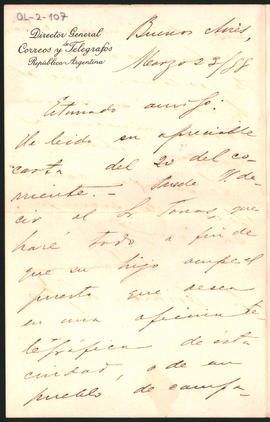 OL-2-107
Director General
de
Correos y Telegrafos
República Argentina
Buenos Aires
Marzo 23/88
Estimado amigo:
He leido su apreciable
carta del 20 del co-
rriente.- Puede V. de-
cir al Sr. Tomas, que
haré todo a fin de
que su hijo ocupe el
puesto que desea
en una oficina te-
legráfica de esta
ciudad, o de un
pueblo de campa-